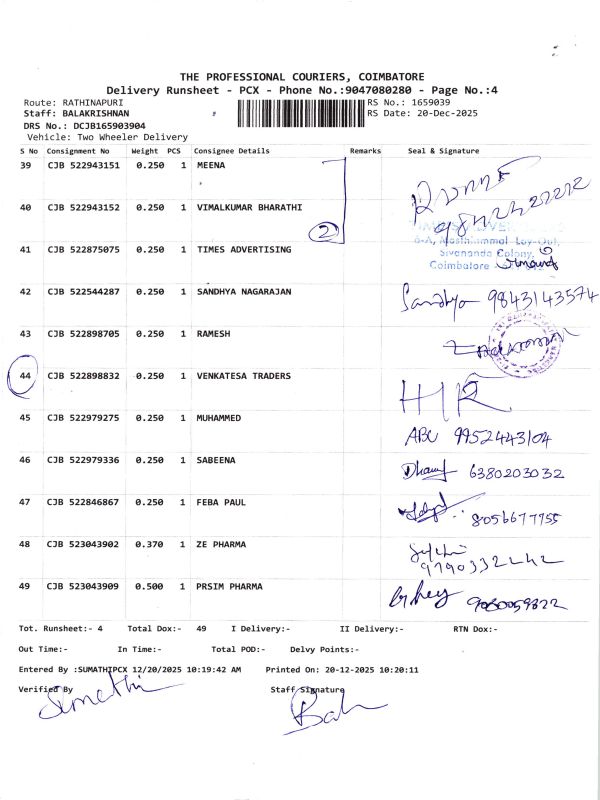 THE PROFESSIONAL COURIERS, COIMBATORE
Delivery Runsheet - PCX - Phone No.:9047080280 - Page No.:4
Route: RATHINAPURI RS No.: 1659039
Staff: BALAKRISHNAN RS Date: 20-Dec-2025
DRS No.: DCJB165903904
Vehicle: Two Wheeler Delivery
S No Consignment No Weight PCS Consignee Details Remarks Seal & Signature
39 CJB 522943151 0.250 1 MEENA
40 CJB 522943152 0.250 1 VIMALKUMAR BHARATHI
2
41 CJB 522875075 0.250 1 TIMES ADVERTISING
Sivananda Colony,
Coimbatore
42 CJB 522544287 0.250 1 SANDHYA NAGARAJAN
Sandhya 9843143574
43 CJB 522898705 0.250 1 RAMESH
44 CJB 522898832 0.250 1 VENKATESA TRADERS
45 CJB 522979275 0.250 1 MUHAMMED
ABU 9952443104
46 CJB 522979336 0.250 1 SABEENA
6380203032
47 CJB 522846867 0.250 1 FEBA PAUL
8056677755
48 CJB 523043902 0.370 1 ZE PHARMA
49 CJB 523043909 0.500 1 PRSIM PHARMA
Tot. Runsheet:- 4 Total Dox:- 49 I Delivery:- II Delivery:- RTN Dox:-
Out Time:- In Time:- Total POD:- Delvy Points:-
Entered By :SUMATHIPCX 12/20/2025 10:19:42 AM Printed On: 20-12-2025 10:20:11
Verified By Staff Signature
Sumathi